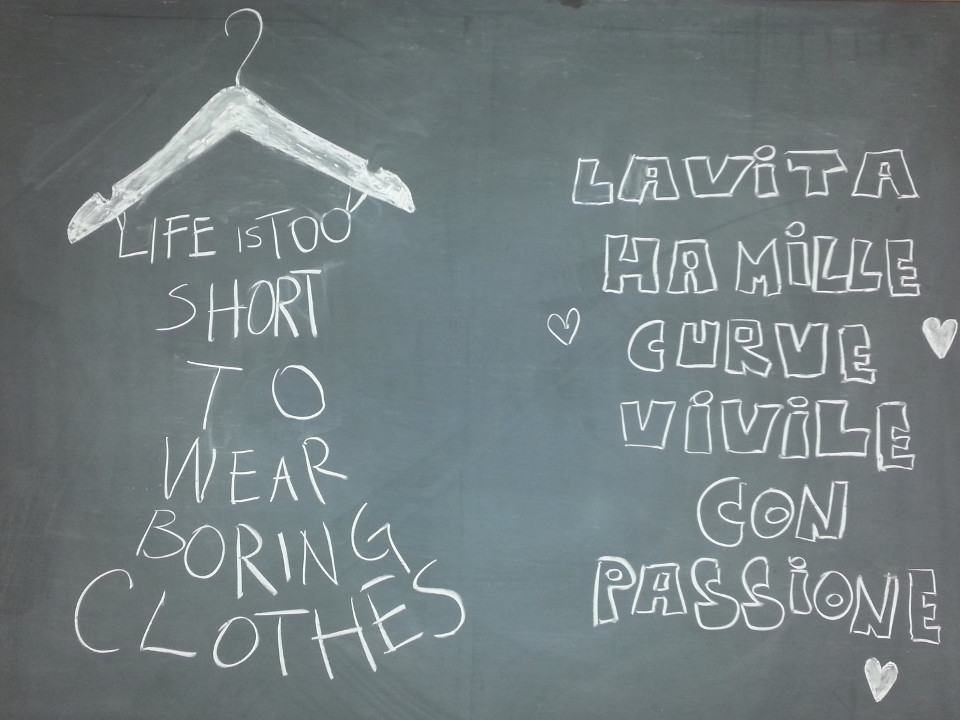 LIFE IS TOO
SHORT
TO
WEAR
BORING
CLOTHES
LA ViTA
HA MiLLE
CURVE
ViViLE
CON
PASSiONE